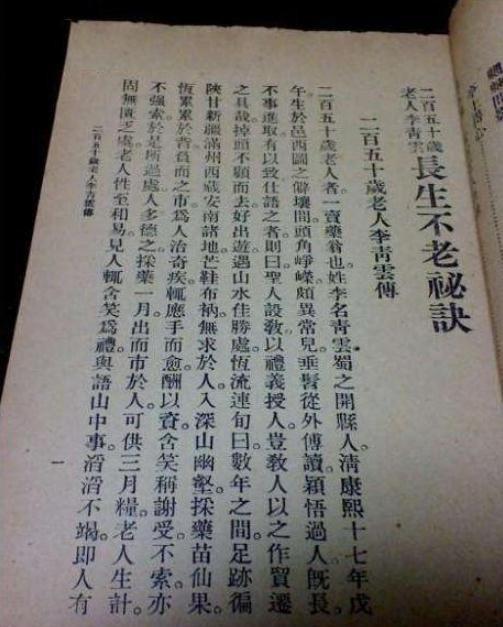 二百五十歲
老人李青雲
長生不老祕訣
二百五十歲老人李青雲傳
二百五十歲老人者。一賣藥翁也。姓李名青雲。蜀之開縣人。淸康熙十七年戊
午。生於邑西圖之僻壤間。頭角崢嶸。頗異常兒。垂髫從外傅讀。穎悟過人。旣長。
不事進取。有以致仕語之者。則曰聖人設敎。以禮義授人。豈敎人以之作貿遷
之具哉。掉頭不顧而去。好出遊。遇山水佳勝處。恆流連旬日。數年之間。足跡徧
陝甘新疆滿州西藏安南諸地。芒鞋布衲。無求於人。入深山幽壑。採藥苗仙果。
恆累累於背。負而之市。爲人治奇疾。輒應手而愈。酬以資。含笑稱謝受。不索。亦
不强索。於是所過處。人多德之。採藥一月。出而市於人。可供三月糧。老人生計。
固無匱乏處。老人性至和易。見人輒含笑爲禮。與語山中事。滔滔不竭。卽人有
二百五十歲老人李青雲傳
一